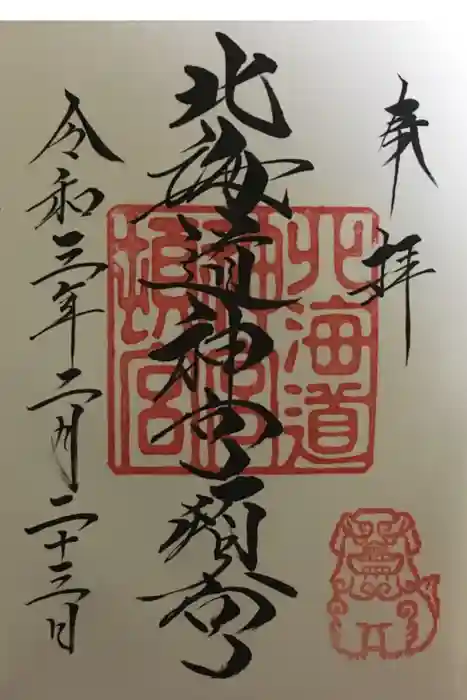 奉拝
北海道神宮頓宮
令和三年二月二十三日
北海道神宮頓宮